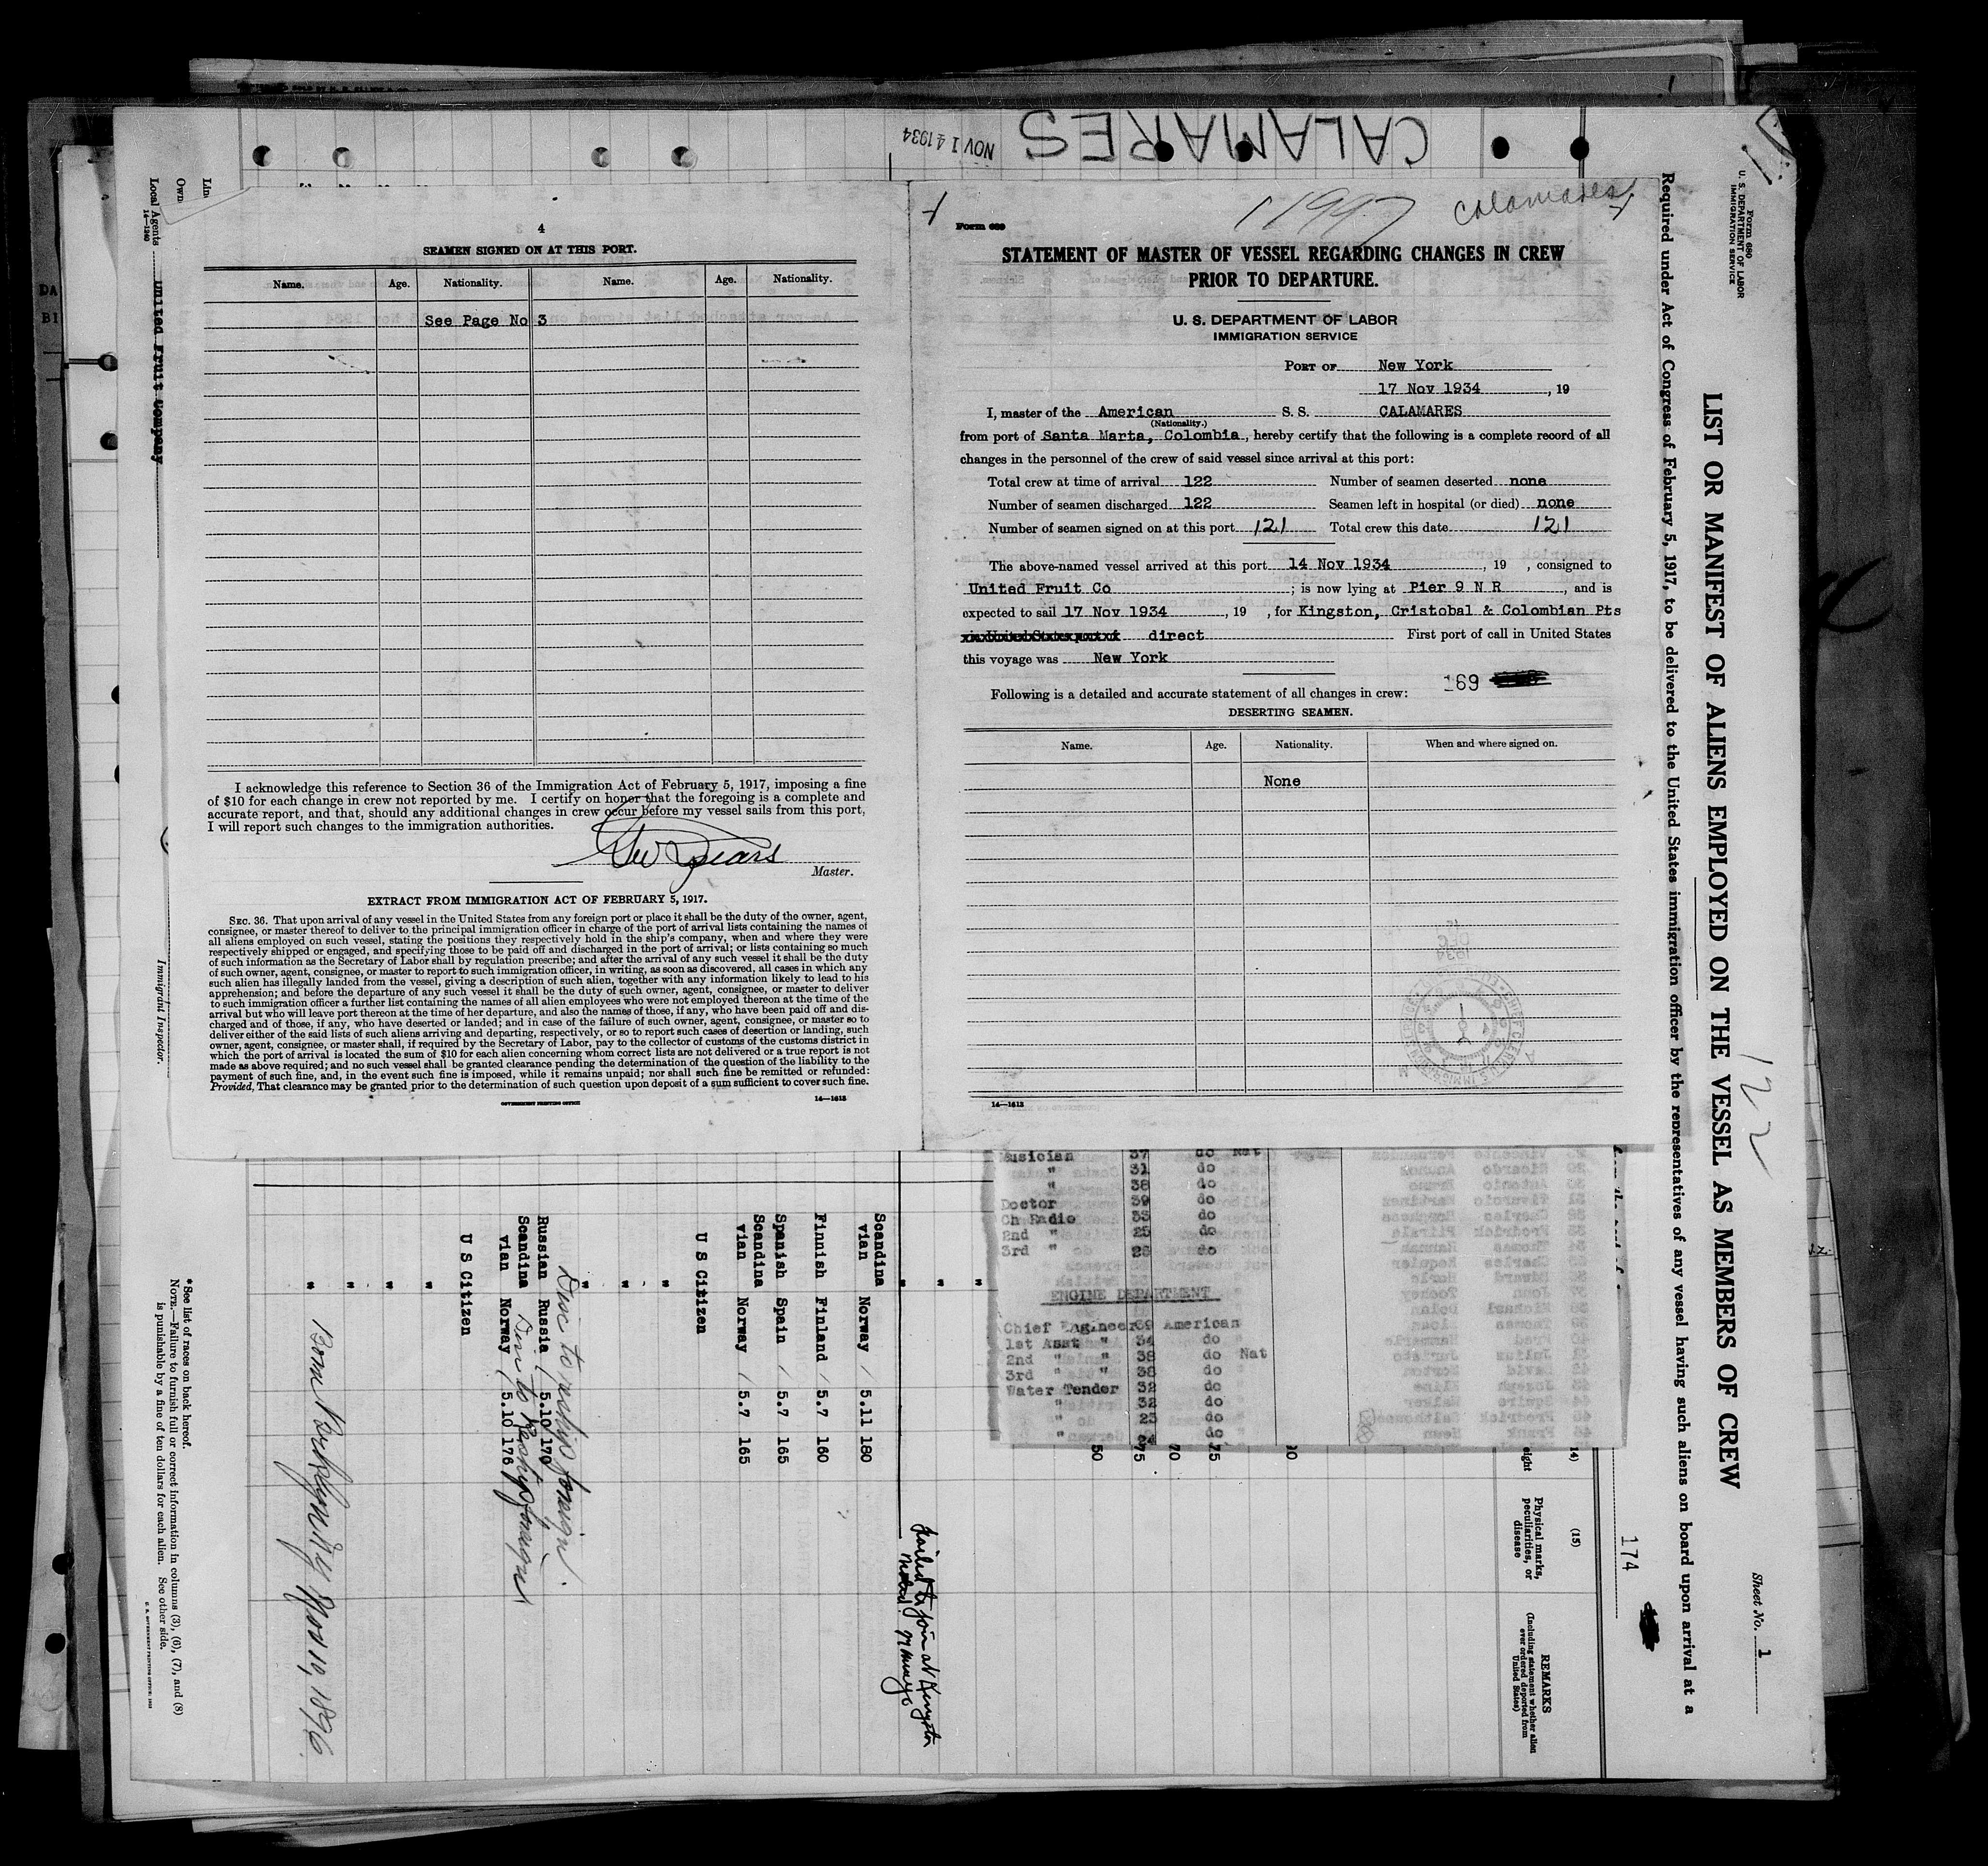 CALAMARES
NOV 14 1934
4
SEAMEN SIGNED ON AT THIS PORT.
Name. Age. Nationality. Name. Age. Nationality.
See Page No 3
I acknowledge this reference to Section 36 of the Immigration Act of February 5, 1917, imposing a fine
of $10 for each change in crew not reported by me. I certify on honor that the foregoing is a complete and
accurate report, and that, should any additional changes in crew occur before my vessel sails from this port,
I will report such changes to the immigration authorities.
Master.
EXTRACT FROM IMMIGRATION ACT OF FEBRUARY 5, 1917.
SEC. 36. That upon arrival of any vessel in the United States from any foreign port or place it shall be the duty of the owner, agent,
consignee, or master thereof to deliver to the principal immigration officer in charge of the port of arrival lists containing the names of
all aliens employed on such vessel, stating the positions they respectively hold in the ship's company, when and where they were
respectively shipped or engaged, and specifying those to be paid off and discharged in the port of arrival; or lists containing so much
of such information as the Secretary of Labor shall by regulation prescribe; and after the arrival of any such vessel it shall be the duty
of such owner, agent, consignee, or master to report to such immigration officer, in writing, as soon as discovered, all cases in which any
such alien has illegally landed from the vessel, giving a description of such alien, together with any information likely to lead to his
apprehension; and before the departure of any such vessel it shall be the duty of such owner, agent, consignee, or master to deliver
to such immigration officer a further list containing the names of all alien employees who were not employed thereon at the time of the
arrival but who will leave port thereon at the time of her departure, and also the names of those, if any, who have been paid off and dis-
charged and of those, if any, who have deserted or landed; and in case of the failure of such owner, agent, consignee, or master so to
deliver either of the said lists of such aliens arriving and departing, respectively, or so to report such cases of desertion or landing, such
owner, agent, consignee, or master shall, if required by the Secretary of Labor, pay to the collector of customs of the customs district in
which the port of arrival is located the sum of $10 for each alien concerning whom correct lists are not delivered or a true report is not
made as above required; and no such vessel shall be granted clearance pending the determination of the question of the liability to the
payment of such fine, and, in the event such fine is imposed, while it remains unpaid; nor shall such fine be remitted or refunded:
Provided, That clearance may be granted prior to the determination of such question upon deposit of a sum sufficient to cover such fine.
GOVERNMENT PRINTING OFFICE 14—1613
11997 Calamares
Form 689
STATEMENT OF MASTER OF VESSEL REGARDING CHANGES IN CREW
PRIOR TO DEPARTURE.
U. S. DEPARTMENT OF LABOR
IMMIGRATION SERVICE
PORT OF New York
17 Nov 1934, 19
I, master of the American S. S. CALAMARES
(Nationality.)
from port of Santa Marta, Colombia, hereby certify that the following is a complete record of all
changes in the personnel of the crew of said vessel since arrival at this port:
Total crew at time of arrival 122 Number of seamen deserted none
Number of seamen discharged 122 Seamen left in hospital (or died) none
Number of seamen signed on at this port 121 Total crew this date 121
The above-named vessel arrived at this port 14 Nov 1934, 19 , consigned to
United Fruit Co ; is now lying at Pier 9 N R, and is
expected to sail 17 Nov 1934, 19 , for Kingston, Cristobal & Colombian Pts
direct First port of call in United States
this voyage was New York
169
Following is a detailed and accurate statement of all changes in crew:
DESERTING SEAMEN.
Name. Age. Nationality. When and where signed on.
None
14—1613
Musician 37 do Nat
" 31 do
" 38 do
Doctor 39 do
Ch Radio 33 do
2nd " 25 do
3rd " 26 do
ENGINE DEPARTMENT
Chief Engineer 39 American
1st Asst " 34 do
2nd " " 38 do Nat
3rd " " 38 do
Water Tender 32 do
" 32 do
" 23 do
" 24 do
Form 680
U. S. DEPARTMENT OF LABOR
IMMIGRATION SERVICE
LIST OR MANIFEST OF ALIENS EMPLOYED ON THE VESSEL AS MEMBERS OF CREW
122
Sheet No. 1
Required under Act of Congress of February 5, 1917, to be delivered to the United States immigration officer by the representatives of any vessel having such aliens on board upon arrival at a
174
(14) (15)
Physical marks, peculiarities, or disease
REMARKS
(Including statement whether alien ever ordered deported from United States)
failed to join at Kingston
Scandinavian Norway 5.11 180
Finnish Finland 5.7 160
Spanish Spain 5.7 165
Scandinavian Norway 5.7 165
U S Citizen
"
"
"
Disc to reship foreign.
Russian Russia 5.10 170
Scandinavian Norway 5.10 176
Disc to Reship foreign
U S Citizen
"
"
"
"
Born Brooklyn NY Nov 10, 1896
*See list of races on back hereof.
NOTE.—Failure to furnish full or correct information in columns (3), (6), (7), and (8)
is punishable by a fine of ten dollars for each alien. See other side.
Local Agents United Fruit Company
14—1240
Immigrant Inspector.